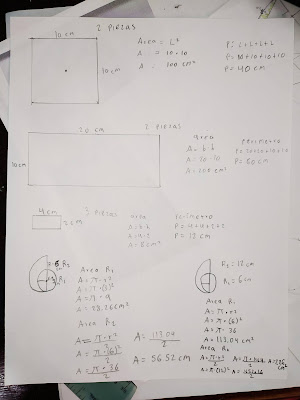 2 piezas
10 cm
10cm
Area = L²
A = 10 • 10
A = 100 cm²
P: L+L+L+L
P= 10+10+10+10
P= 40 cm
20 cm
2 piezas
10cm
area
A = b h
A = 20 • 10
A = 200 cm²
perimetro
P= 20+20+10+10
P= 60 cm
4cm
3 piezas
2cm
area
A = b h
A = 4 • 2
A = 8cm²
perimetro
P= 4+4+2+2
P= 12 cm
R₂
R₁
Area R₁
A = π • r²
A = π • (3)²
A = π • 9
A = 28.26cm²
Area R₂
A = π • r²
2
A = π • (6)²
2
A = π • 36
2
A = 113.04
2
A = 56.52 cm
R₂ = 12cm
R₁ = 6cm
Area R₁
A = π • r²
A = π • (6)²
A = π • 36
A = 113.04 cm²
Area R₂
A = π • r²
2